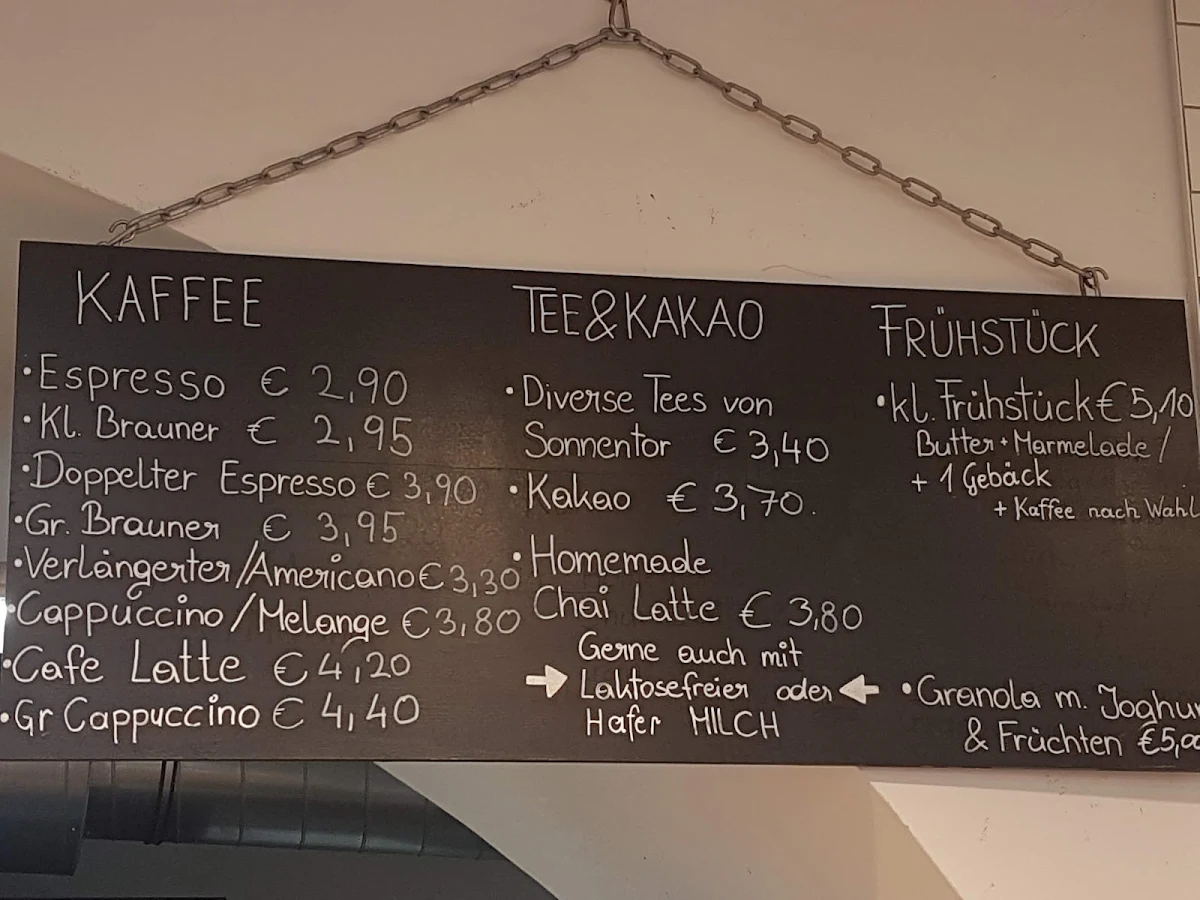 KAFFEE
• Espresso € 2,90
• Kl. Brauner € 2,95
• Doppelter Espresso € 3,90
• Gr. Brauner € 3,95
• Verlängerter/Americano € 3,30
• Cappuccino/Melange € 3,80
• Cafe Latte € 4,20
• Gr Cappuccino € 4,40
TEE&KAKAO
• Diverse Tees von
Sonnentor € 3,40
• Kakao € 3,70.
• Homemade
Chai Latte € 3,80
Gerne auch mit
Laktosefreier oder
Hafer MILCH
FRÜHSTÜCK
• kl. Frühstück € 5,10
Butter + Marmelade /
+ 1 Gebäck
+ Kaffee nach Wahl
• Granola m. Joghur
& Früchten €5,00